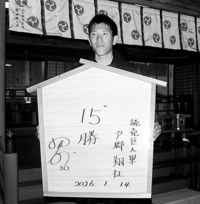 読売巨人軍
戸郷翔征
15勝
20
2026 1 14